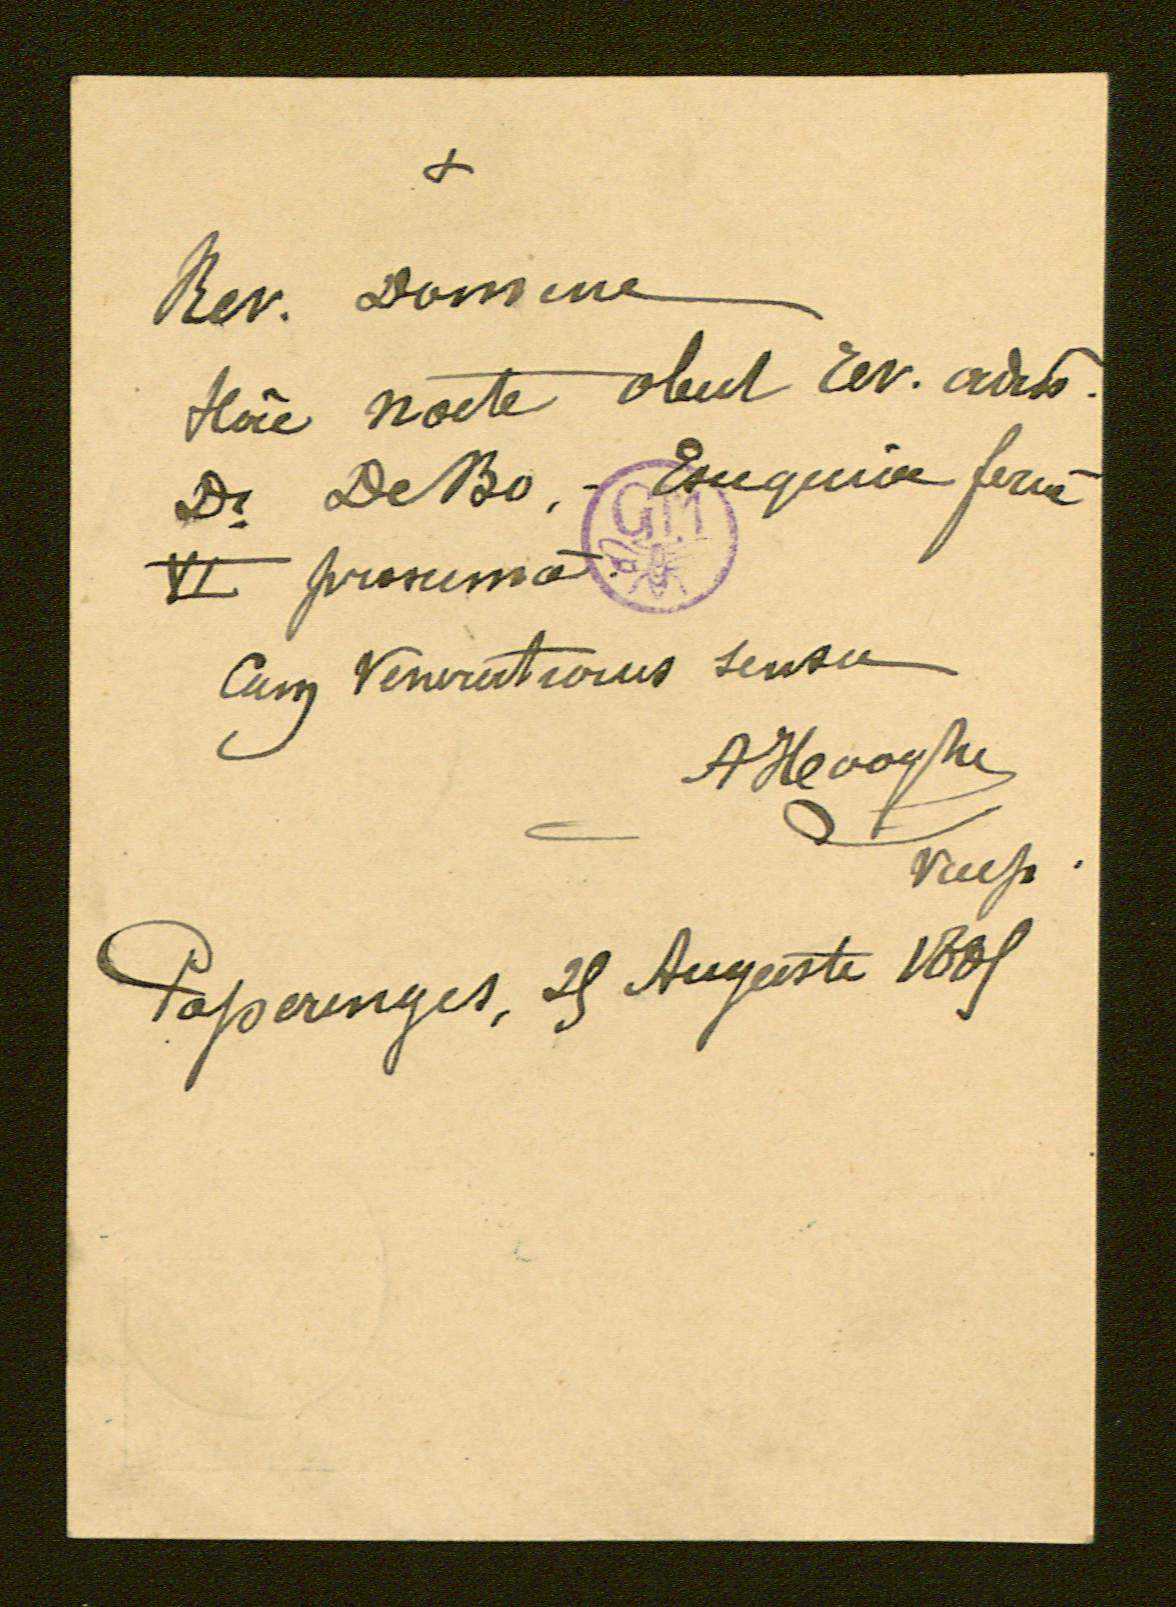 +
Rev. Domine
Hâc nocte obiit Rev. adm.
Dr. De Bo, - Exequiæ feriâ
GM
VI proximâ.
Cum Venerationis sensu
A Hooghe
Poperinges, 25 Auguste 1885